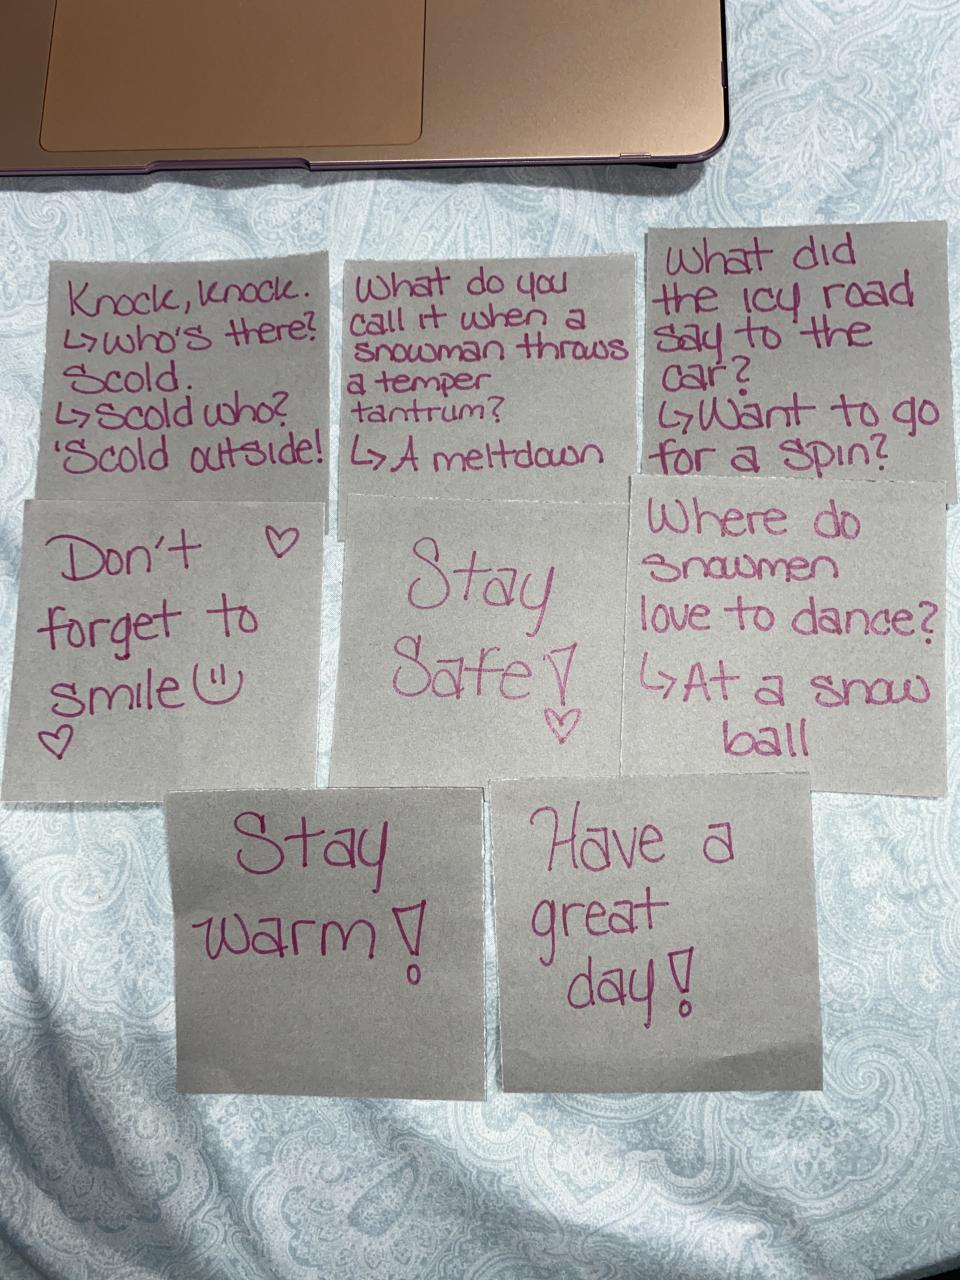 Knock, knock.
↳Who's there?
Scold.
↳Scold who?
'Scold outside!
What do you
call it when a
snowman throws
a temper
tantrum?
↳A meltdown
What did
the icy road
say to the
car?
↳Want to go
for a spin?
Don't ♡
forget to
smile☺
♡
Stay
Safe!
♡
Where do
snowmen
love to dance?
↳At a snow
ball
Stay
warm!
Have a
great
day!